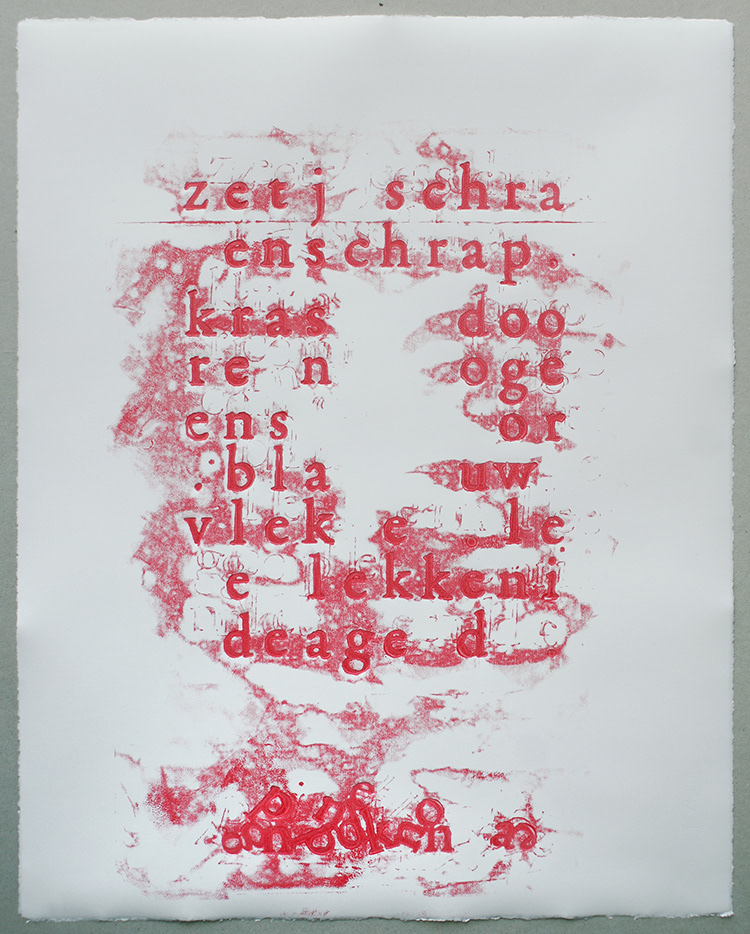 zetj schra
enschrap.
kras doo
re n oge
ens or
.bla uw
vlek e le
e lekkeni
deage d